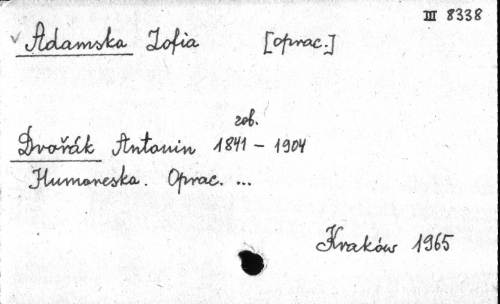 III 8338
Adamska Zofia [oprac.]
zob.
Dvořák Antonin 1841 - 1904
Humoreska. Oprac. ...
Kraków 1965